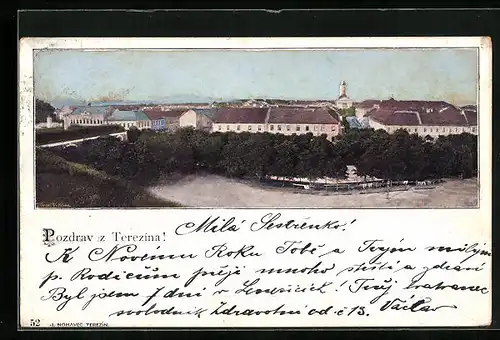 Pozdrav z Terezína!
Milá Sestřenko!
K Novému Roku Tobě a Tvým milým
p. Rodičům přeje mnoho štěstí a zdraví
Byl jsem 7 dní v! Tvůj bratranec
svobodník Zdravotní od. č 13. Václav
52
J. NOHAVEC TEREZÍN.